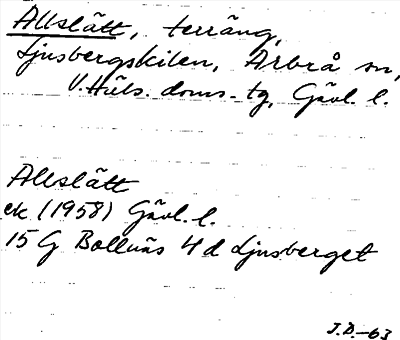 Allslätt, terräng,
Ljusbergskilen, Arbrå sn,
V. Häls. doms-tg, Gävl. l.
Allslätt
ek (1958) Gävl. l.
15 G Bollnäs 4 d Ljusberget
J.D.-63